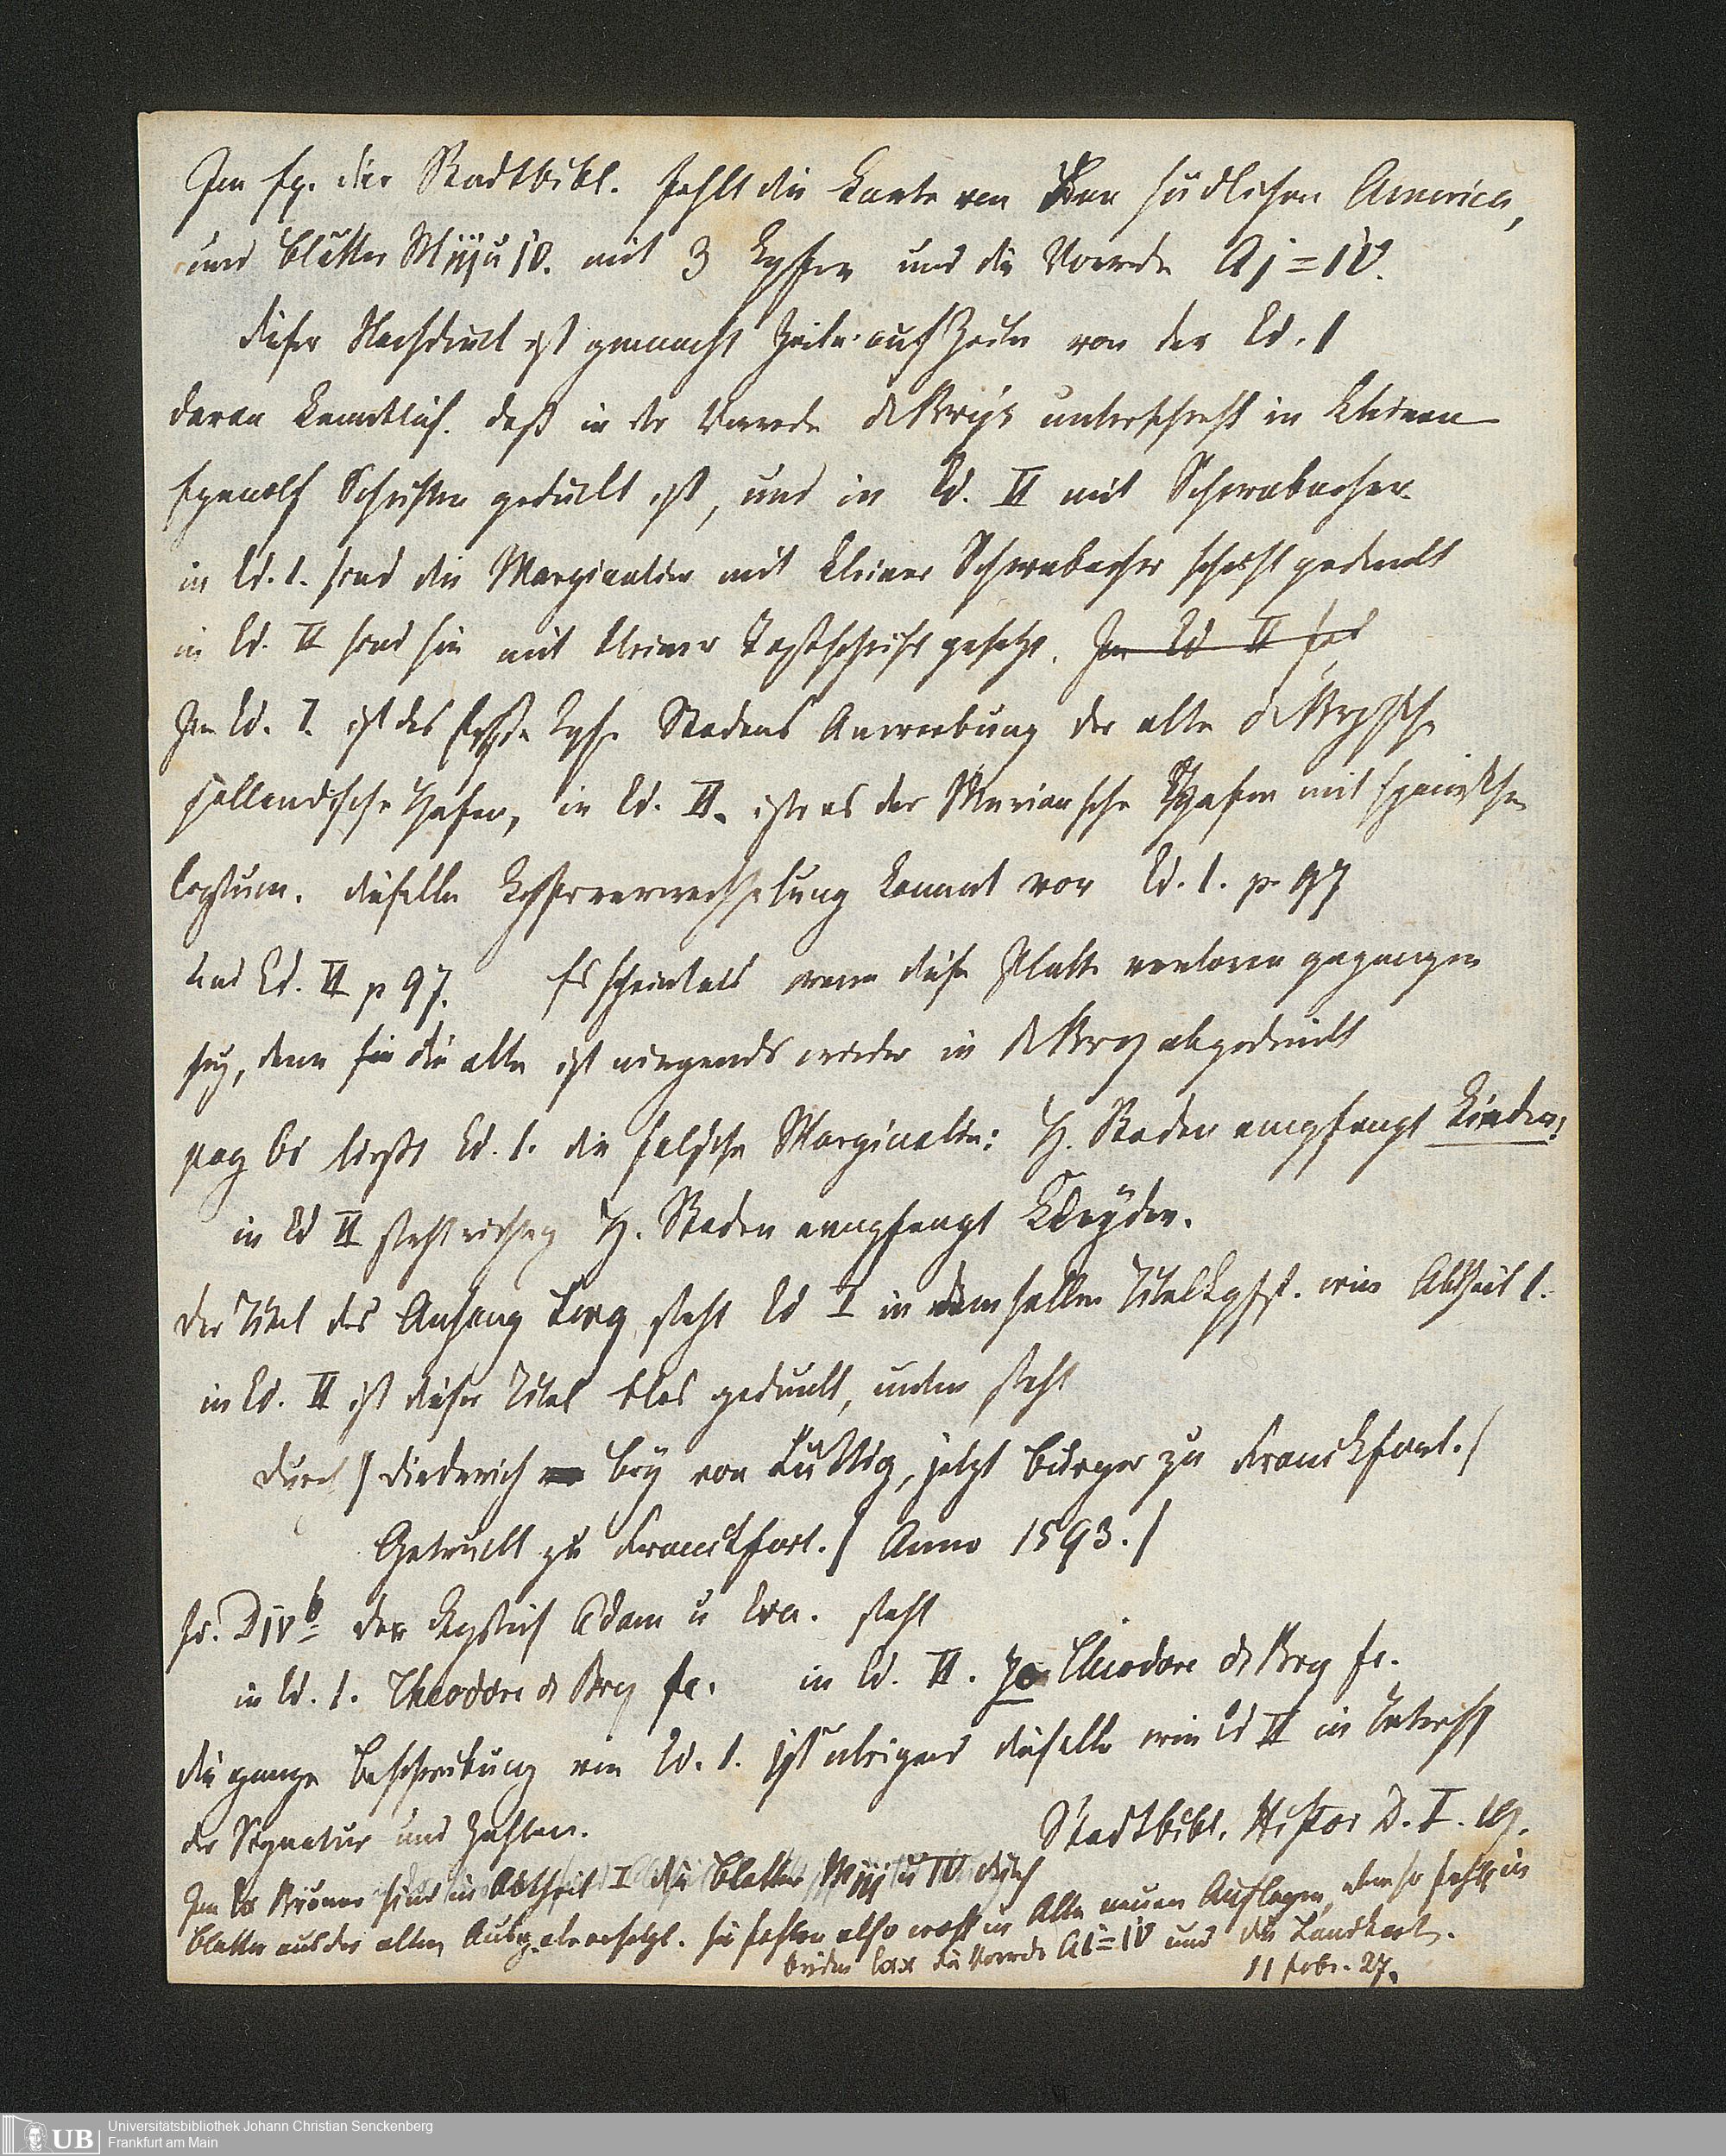 Im Ex. der Stadtbibl. fehlt die Karte von dem südlichen America,
und Blätter Miij u iv. mit 3 Kpfrn und die Vorrede Aj = iv.
Dieser Nachdruck ist gemacht Zeile auf Zeile von der Ed. I
daran kenntlich. daß in der Vorrede de Brys unterschrift in kleinen
Egenolf Schriften gedruckt ist, und in Ed. II mit Schwabacher
in Ed. I. sind die Marginalien mit kleiner Schwabacher schrift gedruckt
in Ed. II sind sie mit kleiner Textschrift gesetzt. Im Ed II
Im Ed. I. ist das erste Kpfr Stadens Anwerbung der alte de Brysche
holländische Hafen, in Ed. II. ist es der Meriansche Hafen mit spanischen
Costum. dieselbe Kpferverwechselung kommt vor Ed. I. p. 97
und Ed. II p 97. Es scheint als wenn diese Platte verloren gegangen
sey, denn die alte ist nirgends wieder in de Bry abgedruckt
pag 61 liest Ed. I. die falsche Marginalie: H. Staden empfengt Kinder,
in Ed II steht richtig H. Staden empfengt Kleyder.
Der Titel des Anhang Lery steht Ed I in demselben Titelkpfst. wie Abtheil I.
in Ed. II ist dieser Titel blos gedruckt, unten steht
Durch / Diederich Bry von Lüttig, jetzt Burger zu Franckfort. /
Getruckt zu Franckfort. / Anno 1593. /
Div b der Kpstich Adam u Eva. steht
in Ed. I. Theodore de Bry fe. in Ed. II. Jo Theodore de Bry fe.
die ganze Beschreibung von Ed. I. ist übrigens dieselbe wie Ed II in Betreff
der Signatur und Zahlen.
Stadtbibl. Histor D. I.
sind in Abtheil I die Blätter Miij u IV durch
Blätter aus der alten Ausg. ersetzt. sie fehlen also wohl in Alle neuen Auflagen, eben so fehlt in
beiden Exx die Vorrede Ai = iV und die Landkart.
11 febr. 27.
Universitätsbibliothek Johann Christian Senckenberg
Frankfurt am Main
UB